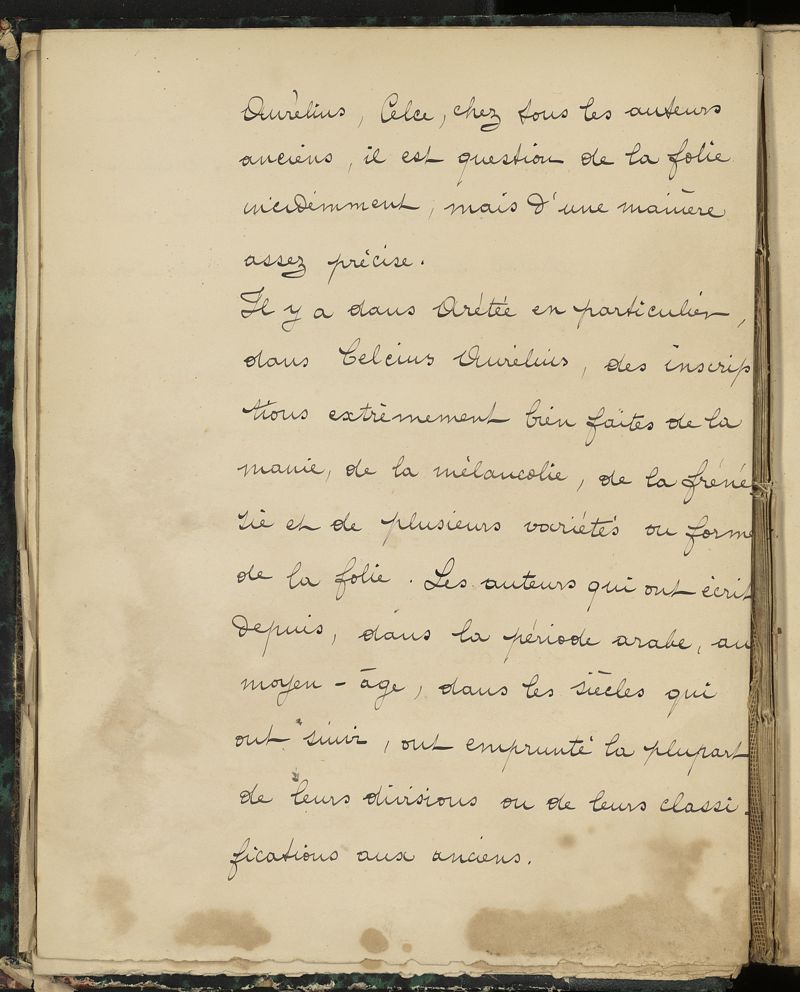 Aurélius, Celce, chez tous les auteurs
anciens, il est question de la folie
incidemment, mais d'une manière
assez précise.
Il y a dans Arétée en particulier,
dans Celcius Aurélius, des inscrip
tions extrêmement bien faites de la
manie, de la mélancolie, de la fréné
sie et de plusieurs variétés ou forme
de la folie. Les auteurs qui ont écrit
depuis, dans la période arabe, au
moyen-âge, dans les siècles qui
ont suivi, ont emprunté la plupart
de leurs divisions ou de leurs classi-
fications aux anciens.